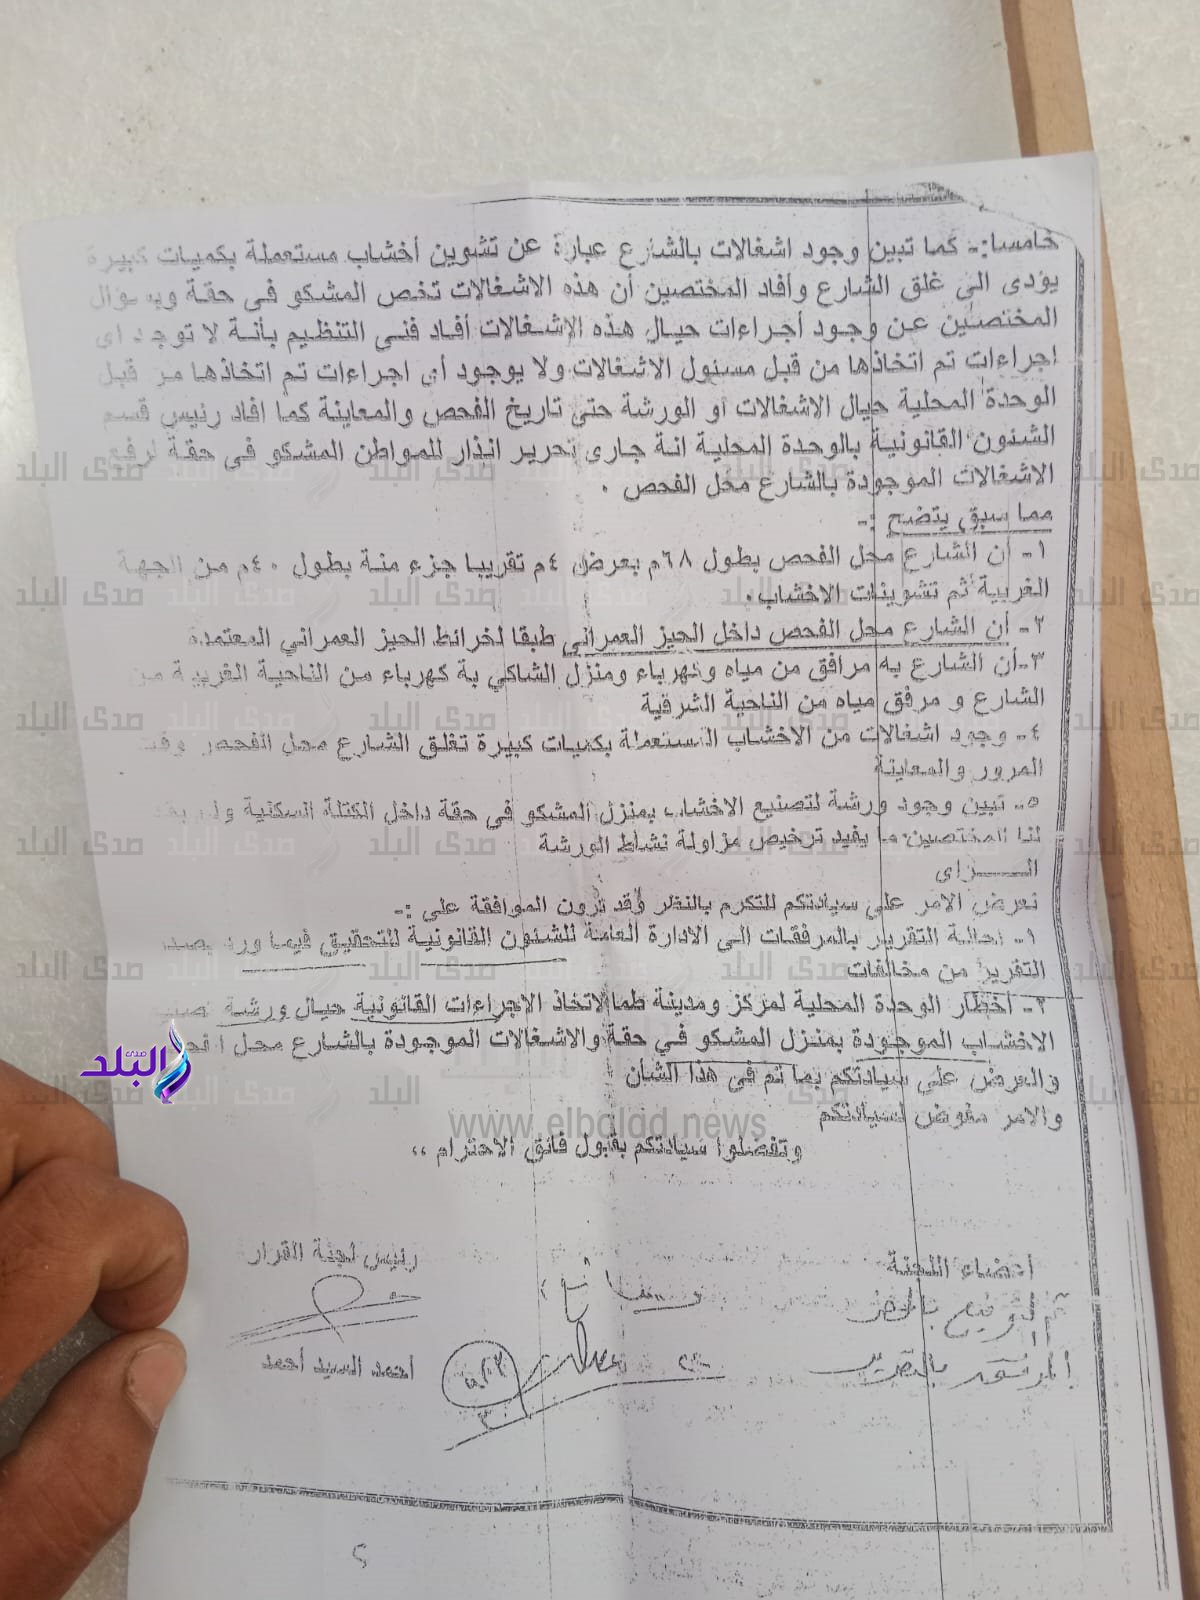 خامسا:- كما تبين وجود اشغالات بالشارع عبارة عن تشوين أخشاب مستعملة بكميات كبيرة
يؤدى الى غلق الشارع وأفاد المختصين أن هذه الاشغالات تخص المشكو فى حقة وبسؤال
المختصين عن وجود أجراءات حيال هذه الاشغالات أفاد فنى التنظيم بأنة لا توجد اى
اجراءات تم اتخاذها من قبل مسئول الاشغالات ولا يوجود أى اجراءات تم اتخاذها من قبل
الوحدة المحلية حيال الاشغالات او الورشة حتى تاريخ الفحص والمعاينة كما افاد رئيس قسم
الشئون القانونية بالوحدة المحلية انة جارى تحرير انذار للمواطن المشكو فى حقة لرفع
الاشغالات الموجودة بالشارع محل الفحص .
مما سبق يتضح :-
١- أن الشارع محل الفحص بطول ٦٨م بعرض ٤م تقريبا جزء منة بطول ٤٠م من الجهة
الغربية تم تشوينات الاخشاب.
٢- أن الشارع محل الفحص داخل الحيز العمرانى طبقا لخرائط الحيز العمرانى المعتمدة
٣-أن الشارع به مرافق من مياه وكهرباء ومنزل الشاكى بة كهرباء من الناحية الغربية من
الشارع و مرفق مياه من الناحية الشرقية
٤- وجود اشغالات من الاخشاب المستعملة بكميات كبيرة تغلق الشارع محل الفحص وقت
المرور والمعاينة
٥- تبين وجود ورشة لتصنيع الاخشاب بمنزل المشكو فى حقة داخل الكتلة السكنية ولم
لنا المختصين ما يفيد ترخيص مزاولة نشاط الورشة
الــــــراى
نعرض الامر على سيادتكم للتكرم بالنظر وقد ترون الموافقة على :-
١- احالة التقرير بالمرفقات الى الادارة العامة للشئون القانونية للتحقيق فيما ورد بصدد
التقرير من مخالفات
٢- أخطار الوحدة المحلية لمركز ومدينة طما لاتخاذ الاجراءات القانونية حيال ورشة
الاخشاب الموجودة بمنزل المشكو فى حقة والاشغالات الموجودة بالشارع محل الفحص
والعرض على سيادتكم بما تم فى هذا الشأن
والامر مفوض لسيادتكم
وتفضلوا سيادتكم بقبول فائق الاحترام ،،
أعضاء اللجنة
رئيس لجنة القرار
أحمد السيد أحمد
صدى البلد
www.elbalad.news